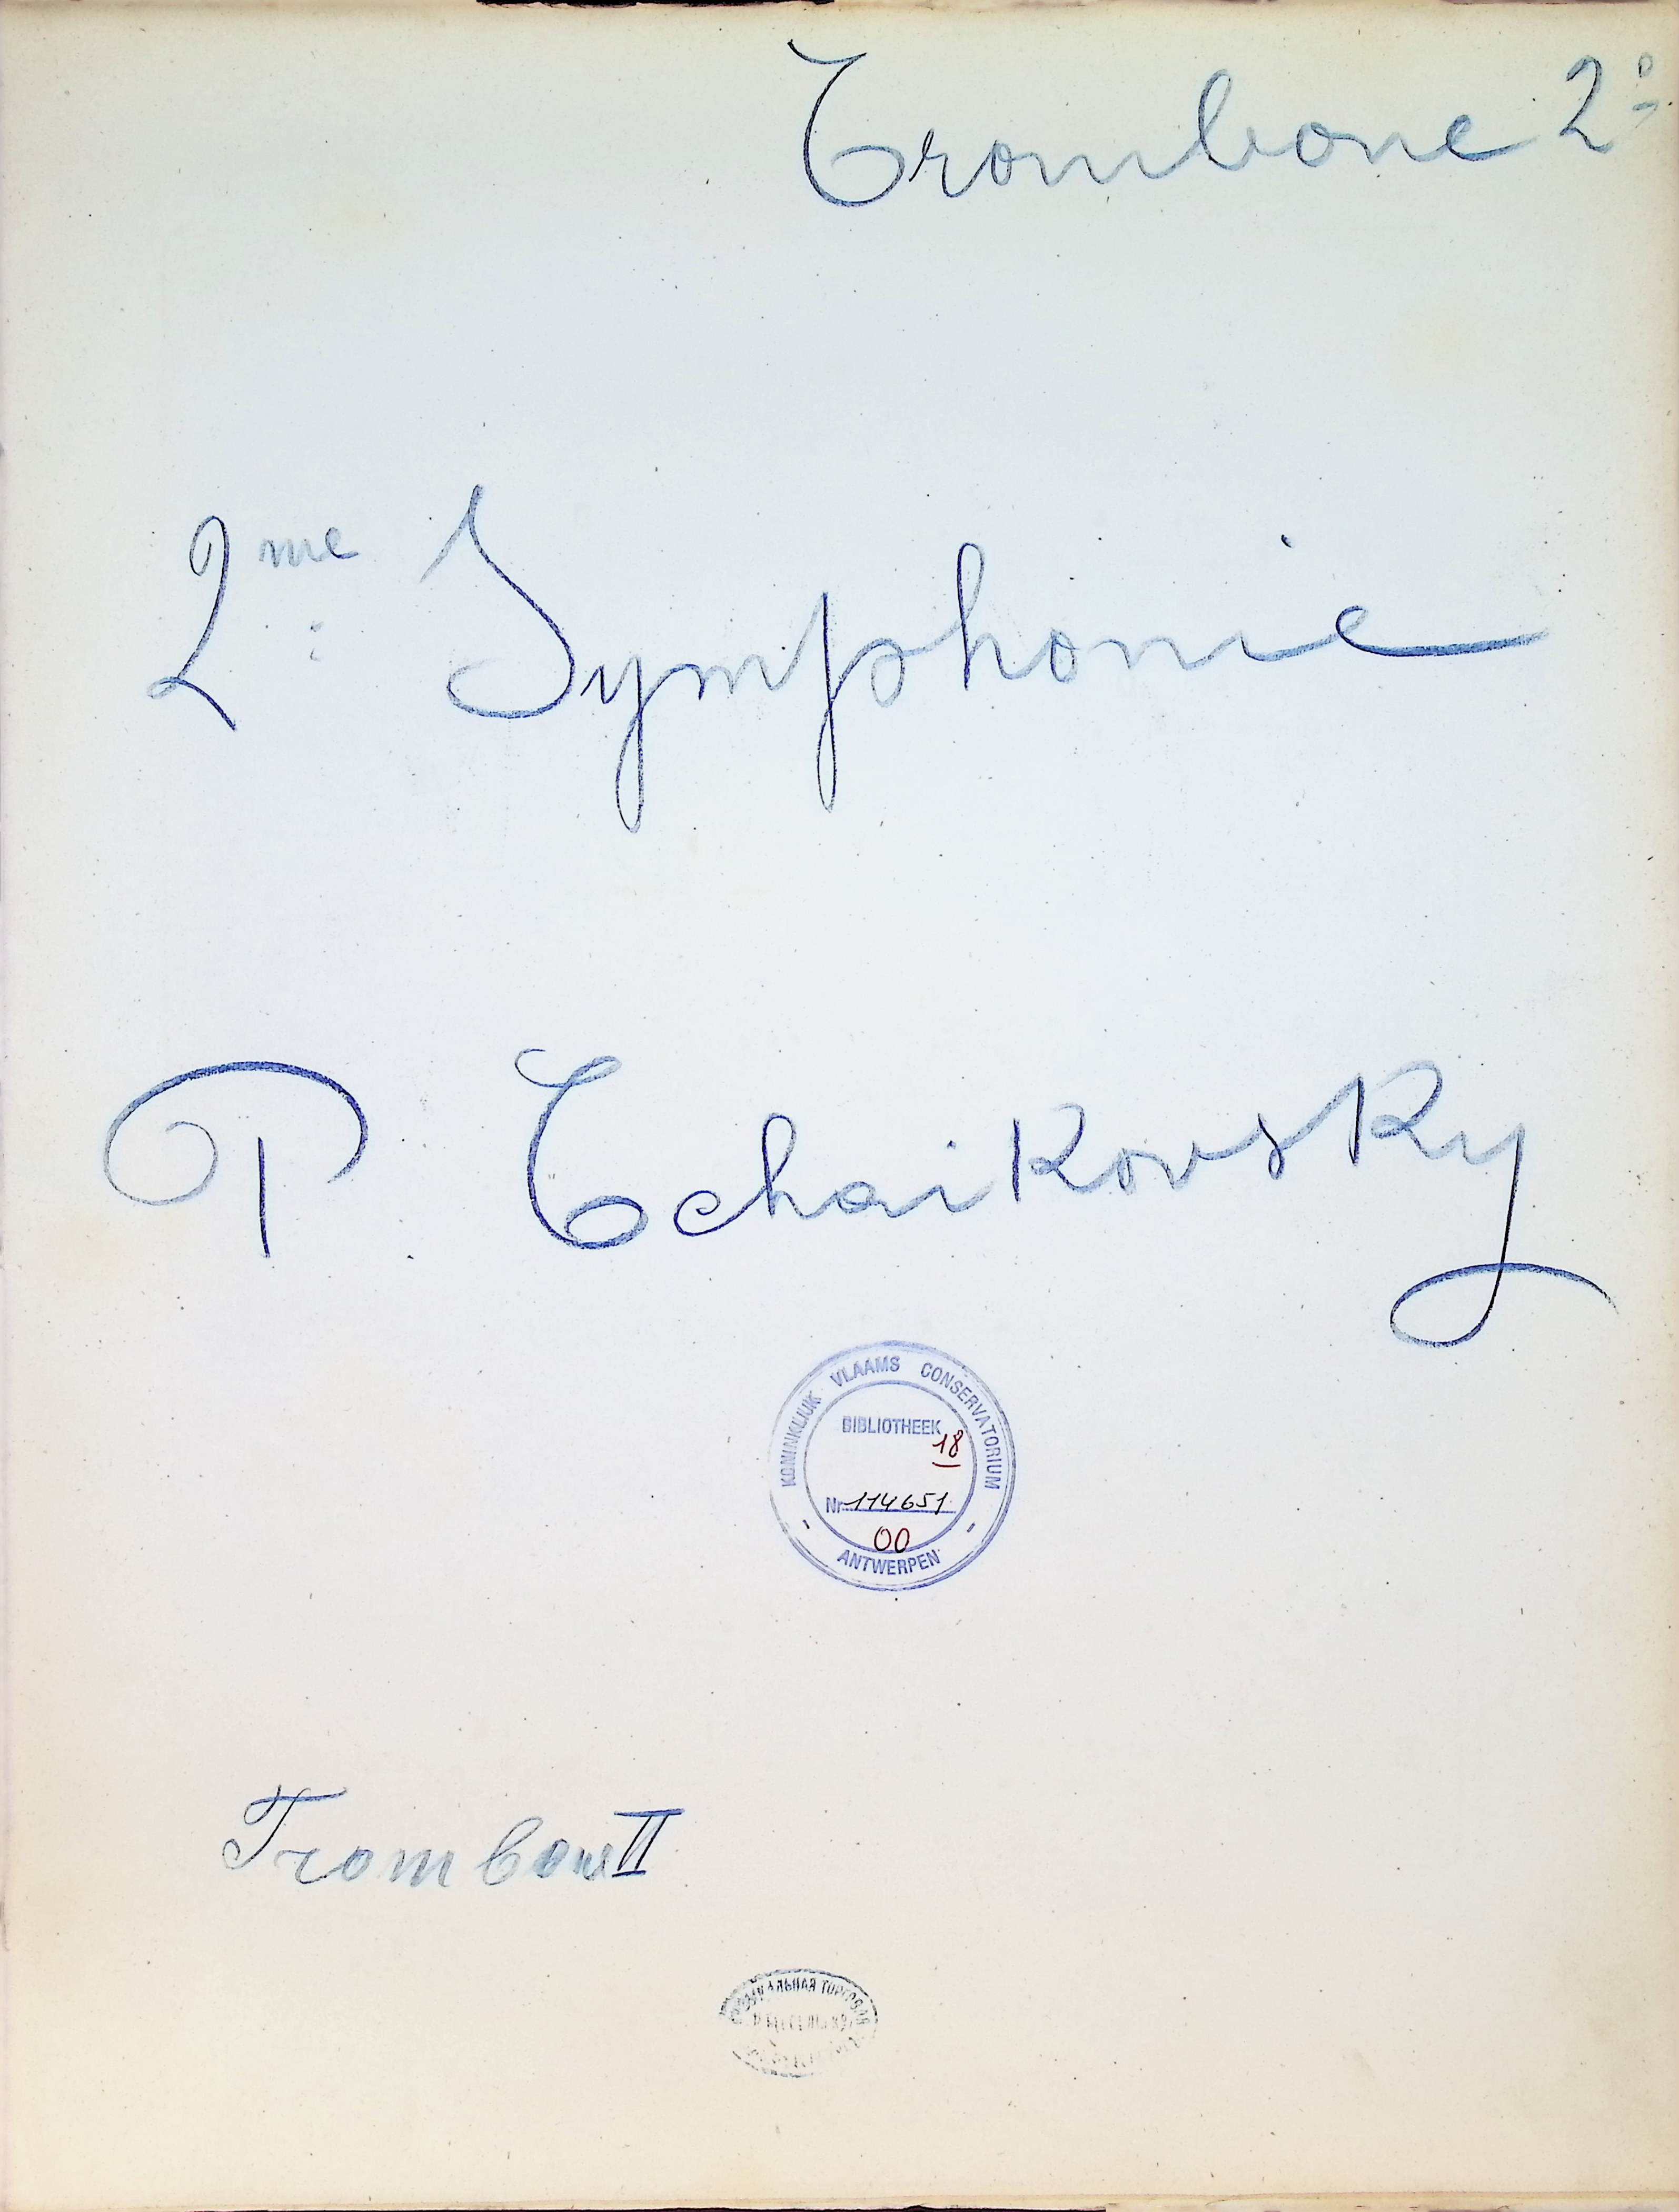 Trombone 2º
2me Symphonie
P. Tchaikovsky
KONINKLIJK VLAAMS CONSERVATORIUM
BIBLIOTHEEK
18
Nr 114651
00
ANTWERPEN
Trombone II
МУЗЫКАЛЬНАЯ ТОРГОВЛЯ